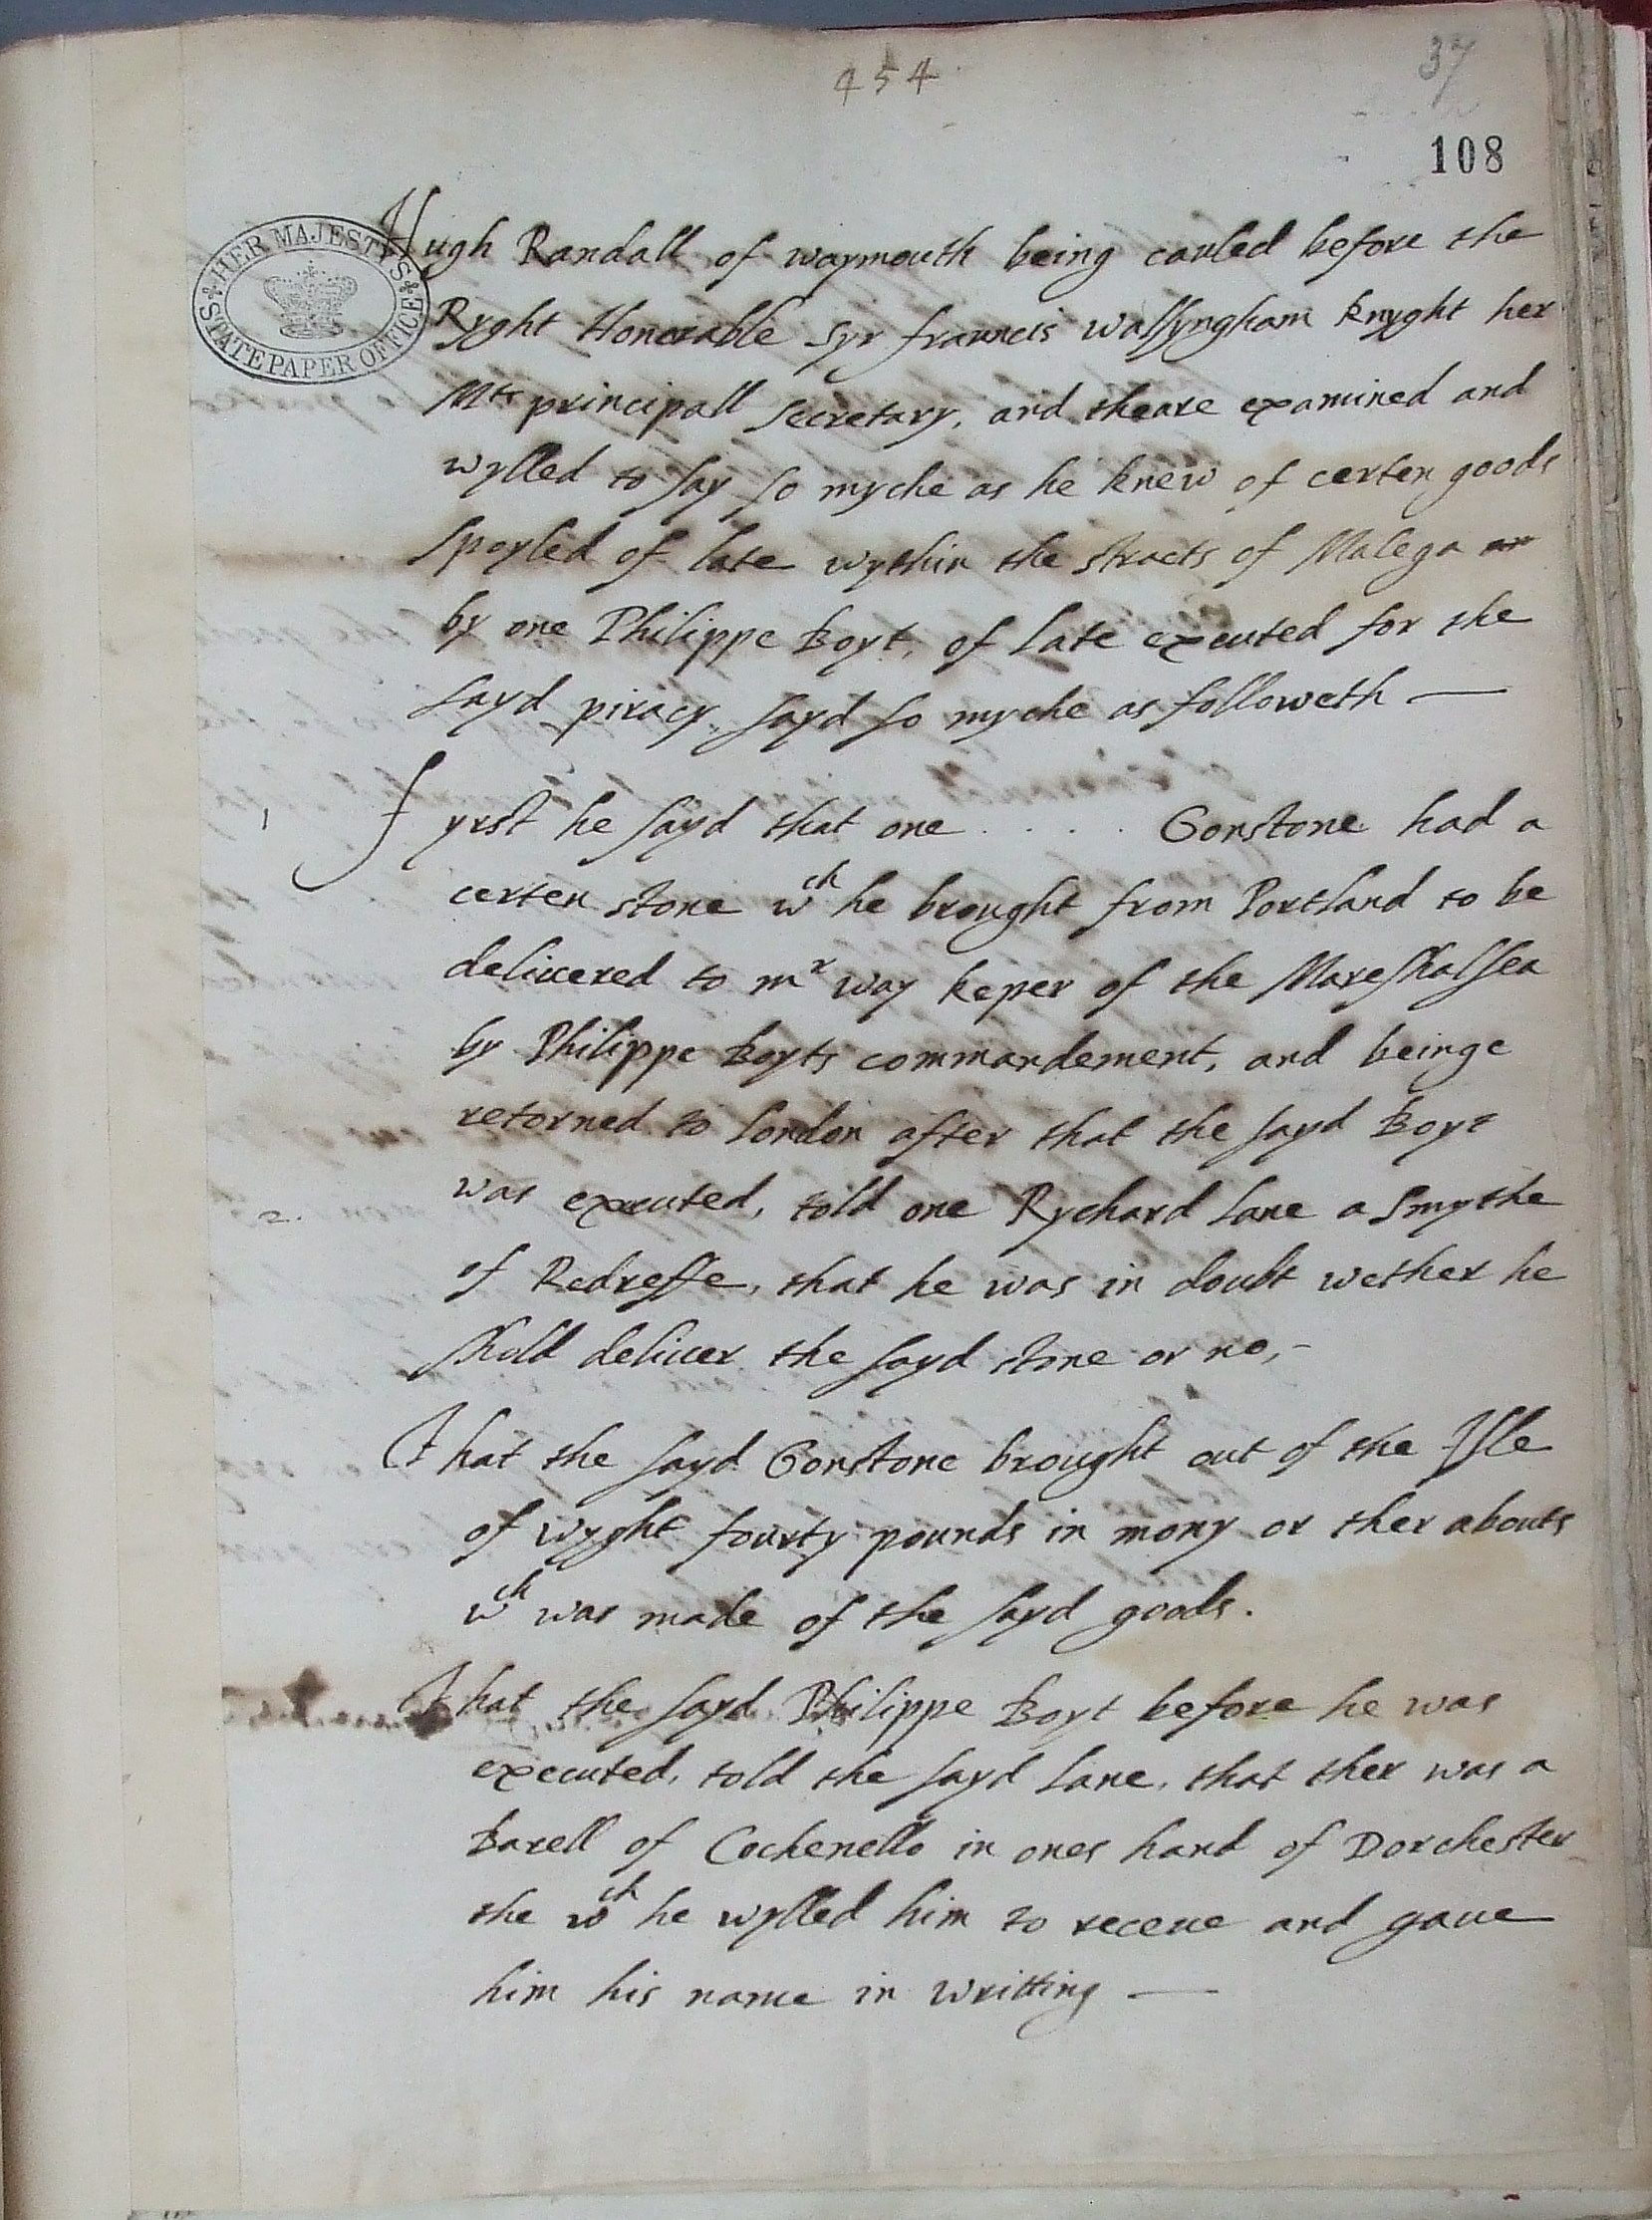 454
37
108
HER MAJESTY'S STATE PAPER OFFICE
Hugh Randall of waymouth being cauled before the
Ryght Honorable Syr frauncis walsyngham knyght her
Mtes principall secretary, and theare examined and
wylled to say so myche as he knew of certen goods
spoyled of late wythin the stracts of Malega
by one Philippe Boyt, of late executed for the
sayd piracy, sayd so myche as followeth —
1 Fyrst he sayd that one . . . . Gonstone had a
certen stone wch he brought from Portland to be
delivered to mr way keper of the Mareshalsea
by Philippe Boyts commandement, and beinge
retorned to london after that the sayd Boyt
2. was executed, told one Rychard lane a smythe
of Redresse, that he was in doubt wether he
shuld deliver the sayd stone or no, -
That the sayd Gonstone brought out of the Isle
of wyght fourty pounds in mony or ther abouts
wch was made of the sayd goods.
That the sayd Philippe Boyt before he was
executed, told the sayd lane, that ther was a
Barell of Cochenello in ones hand of Dorchester
the wch he wylled him to receue and gaue
him his name in writting —